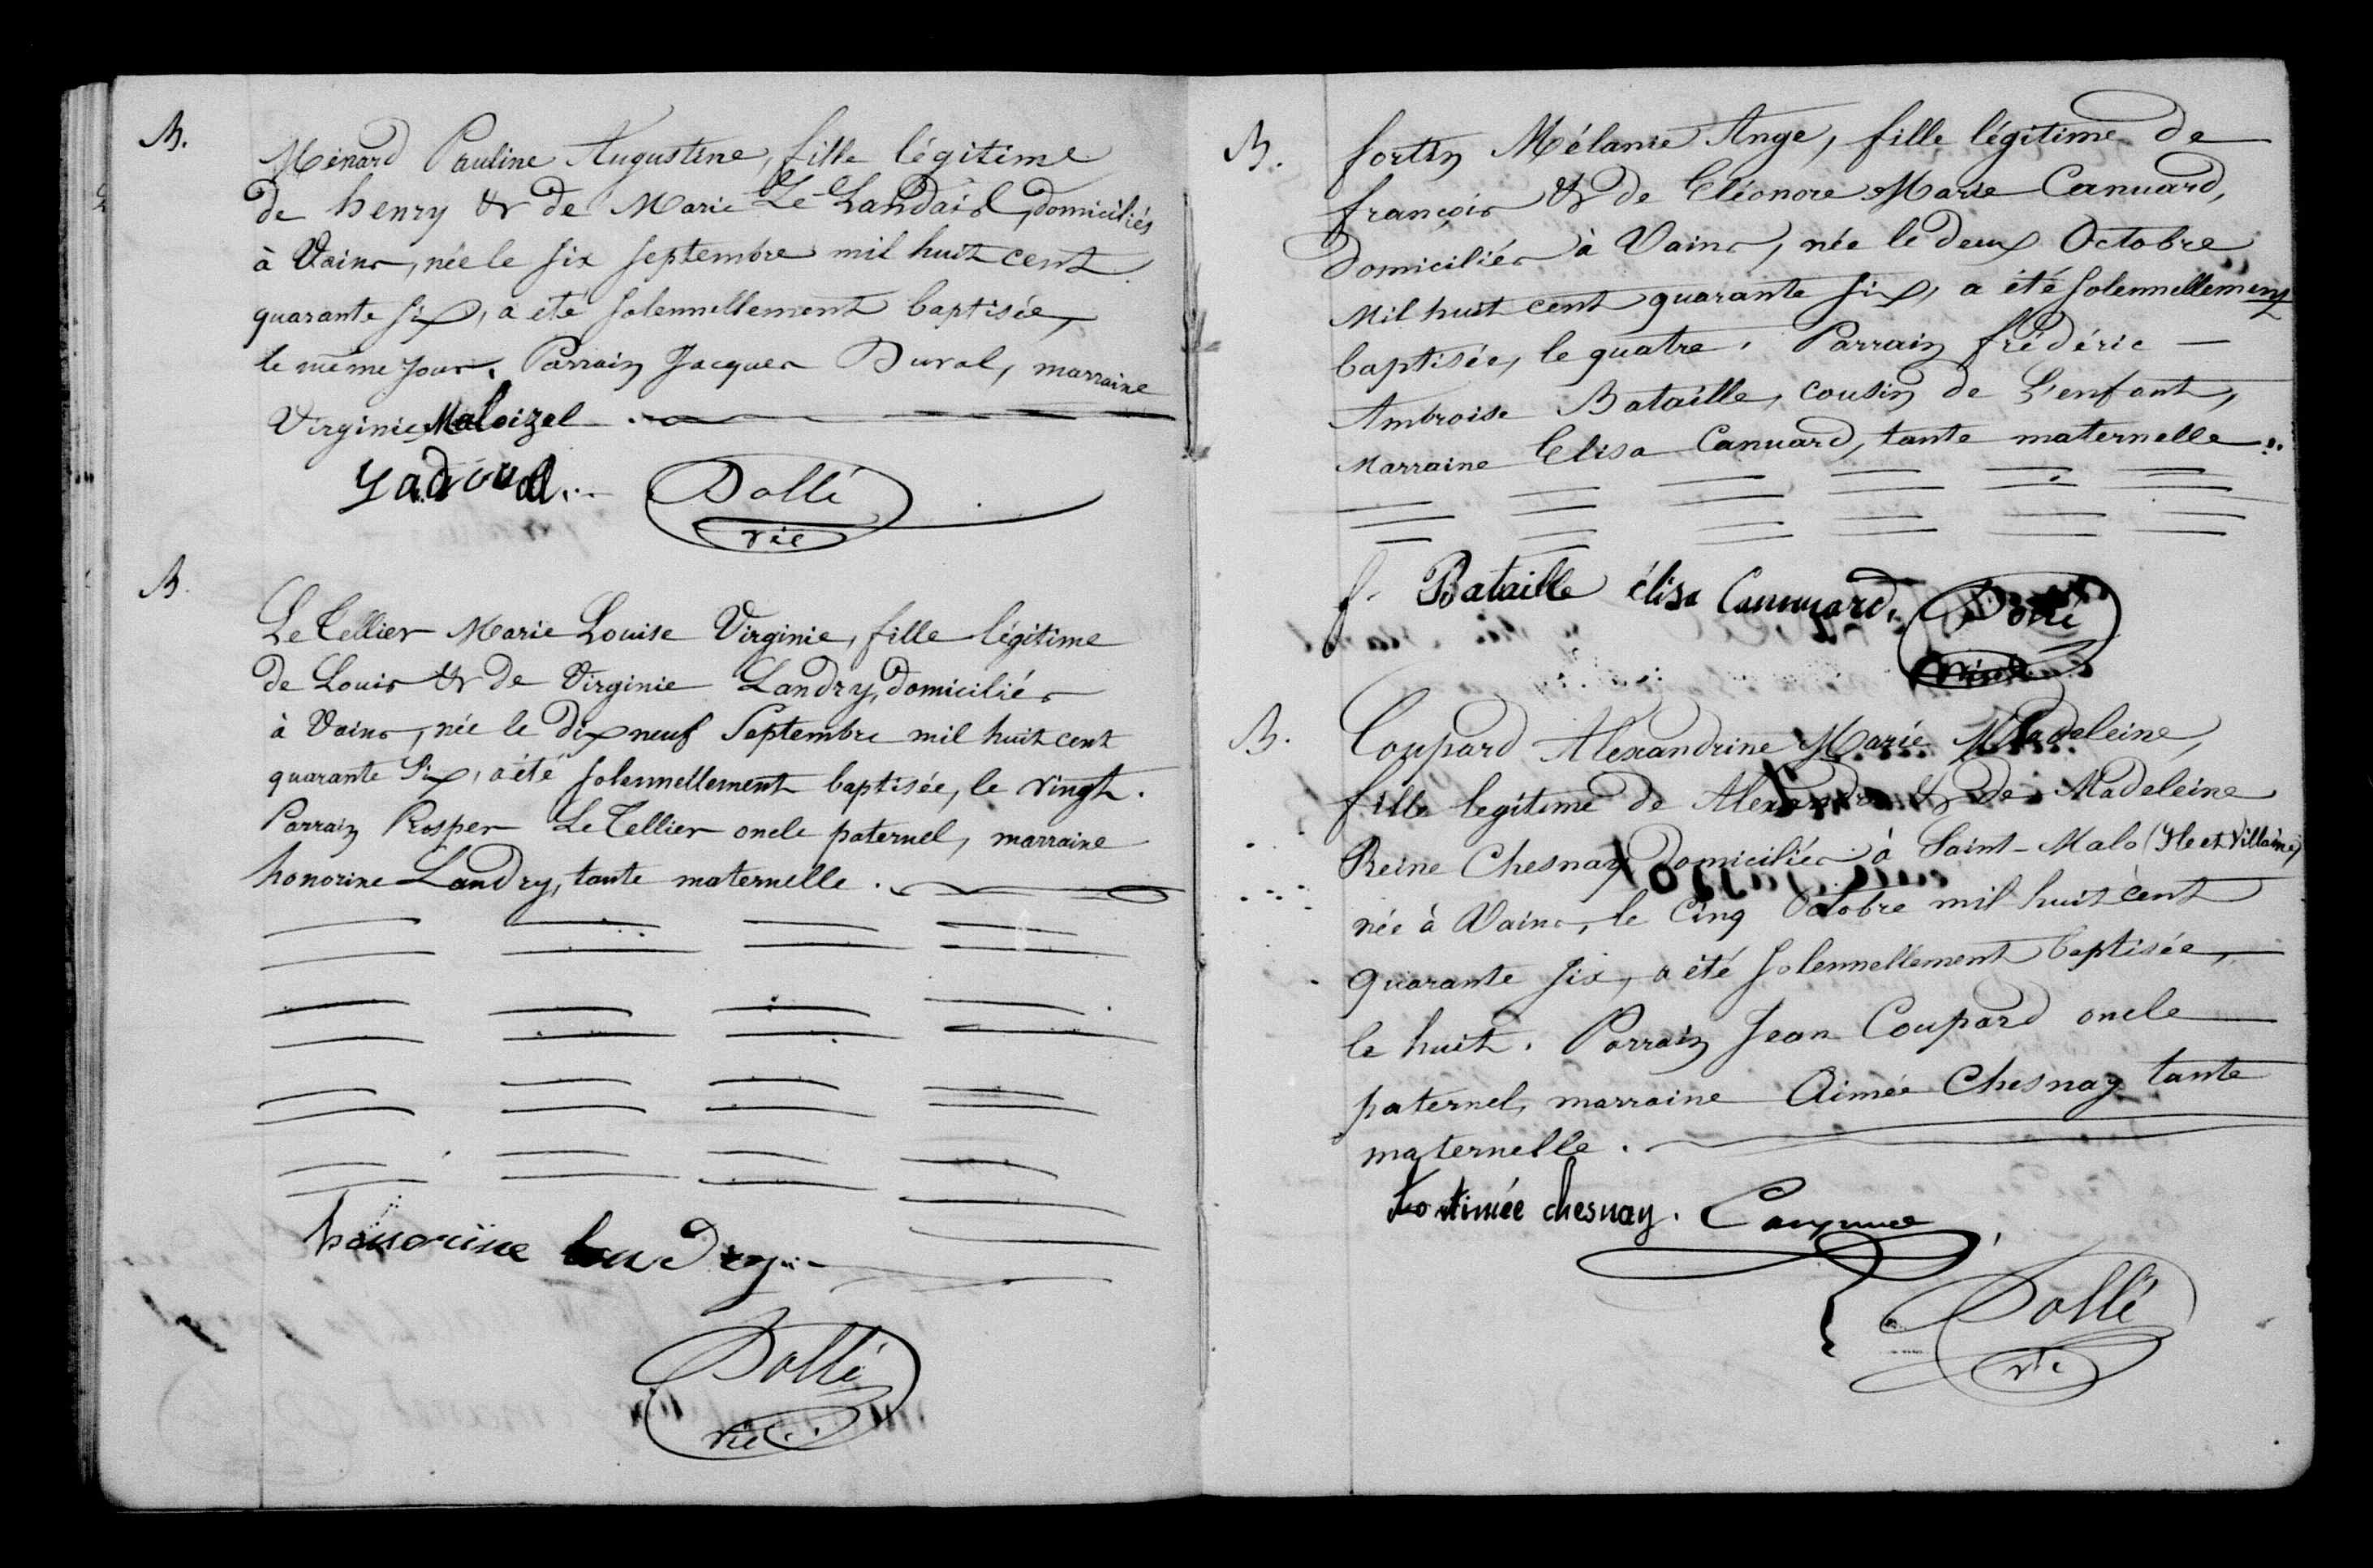 B.
Ménard Pauline Augustine, fille légitime
de henry & de Marie Le Landais, domiciliés
à Vains, née le six septembre mil huit cent
quarante six, a été solennellement baptisée,
le même jour. Parrain Jacques Duval, marraine
Virginie Maloizel.
Dollé
vic
B.
Le Tellier Marie Louise Virginie, fille légitime
de Louis & de Virginie Landry, domiciliés
à Vains, née le dix neuf Septembre mil huit cent
quarante Six, a été solennellement baptisée, le vingt.
Parrain Prosper Le Tellier oncle paternel, marraine
honorine Landry, tante maternelle.
honorine landry
Dollé
vic.
B.
fortin Mélanie Ange, fille légitime de
françois & de Eléonore Marie Canuard,
domiciliés à Vains, née le deux Octobre
Mil huit cent quarante six, a été solennellement
baptisée, le quatre. Parrain frédéric
Ambroise Bataille, cousin de L'enfant,
Marraine Elisa Canuard, tante maternelle.
f. Bataille élisa Canuard.
Dollé
B.
Coupard Alexandrine Marie Madeleine,
fille legitime de Alexandre & de Madeleine
Reine Chesnay domiciliés à Saint-Malo (Ile et Villaine)
née à Vains, le Cinq Octobre mil huit cent
quarante six, a été solennellement baptisée,
le huit. Parrain Jean Coupard oncle
paternel, marraine Aimée Chesnay tante
maternelle.
chesnay.
Dollé
vic